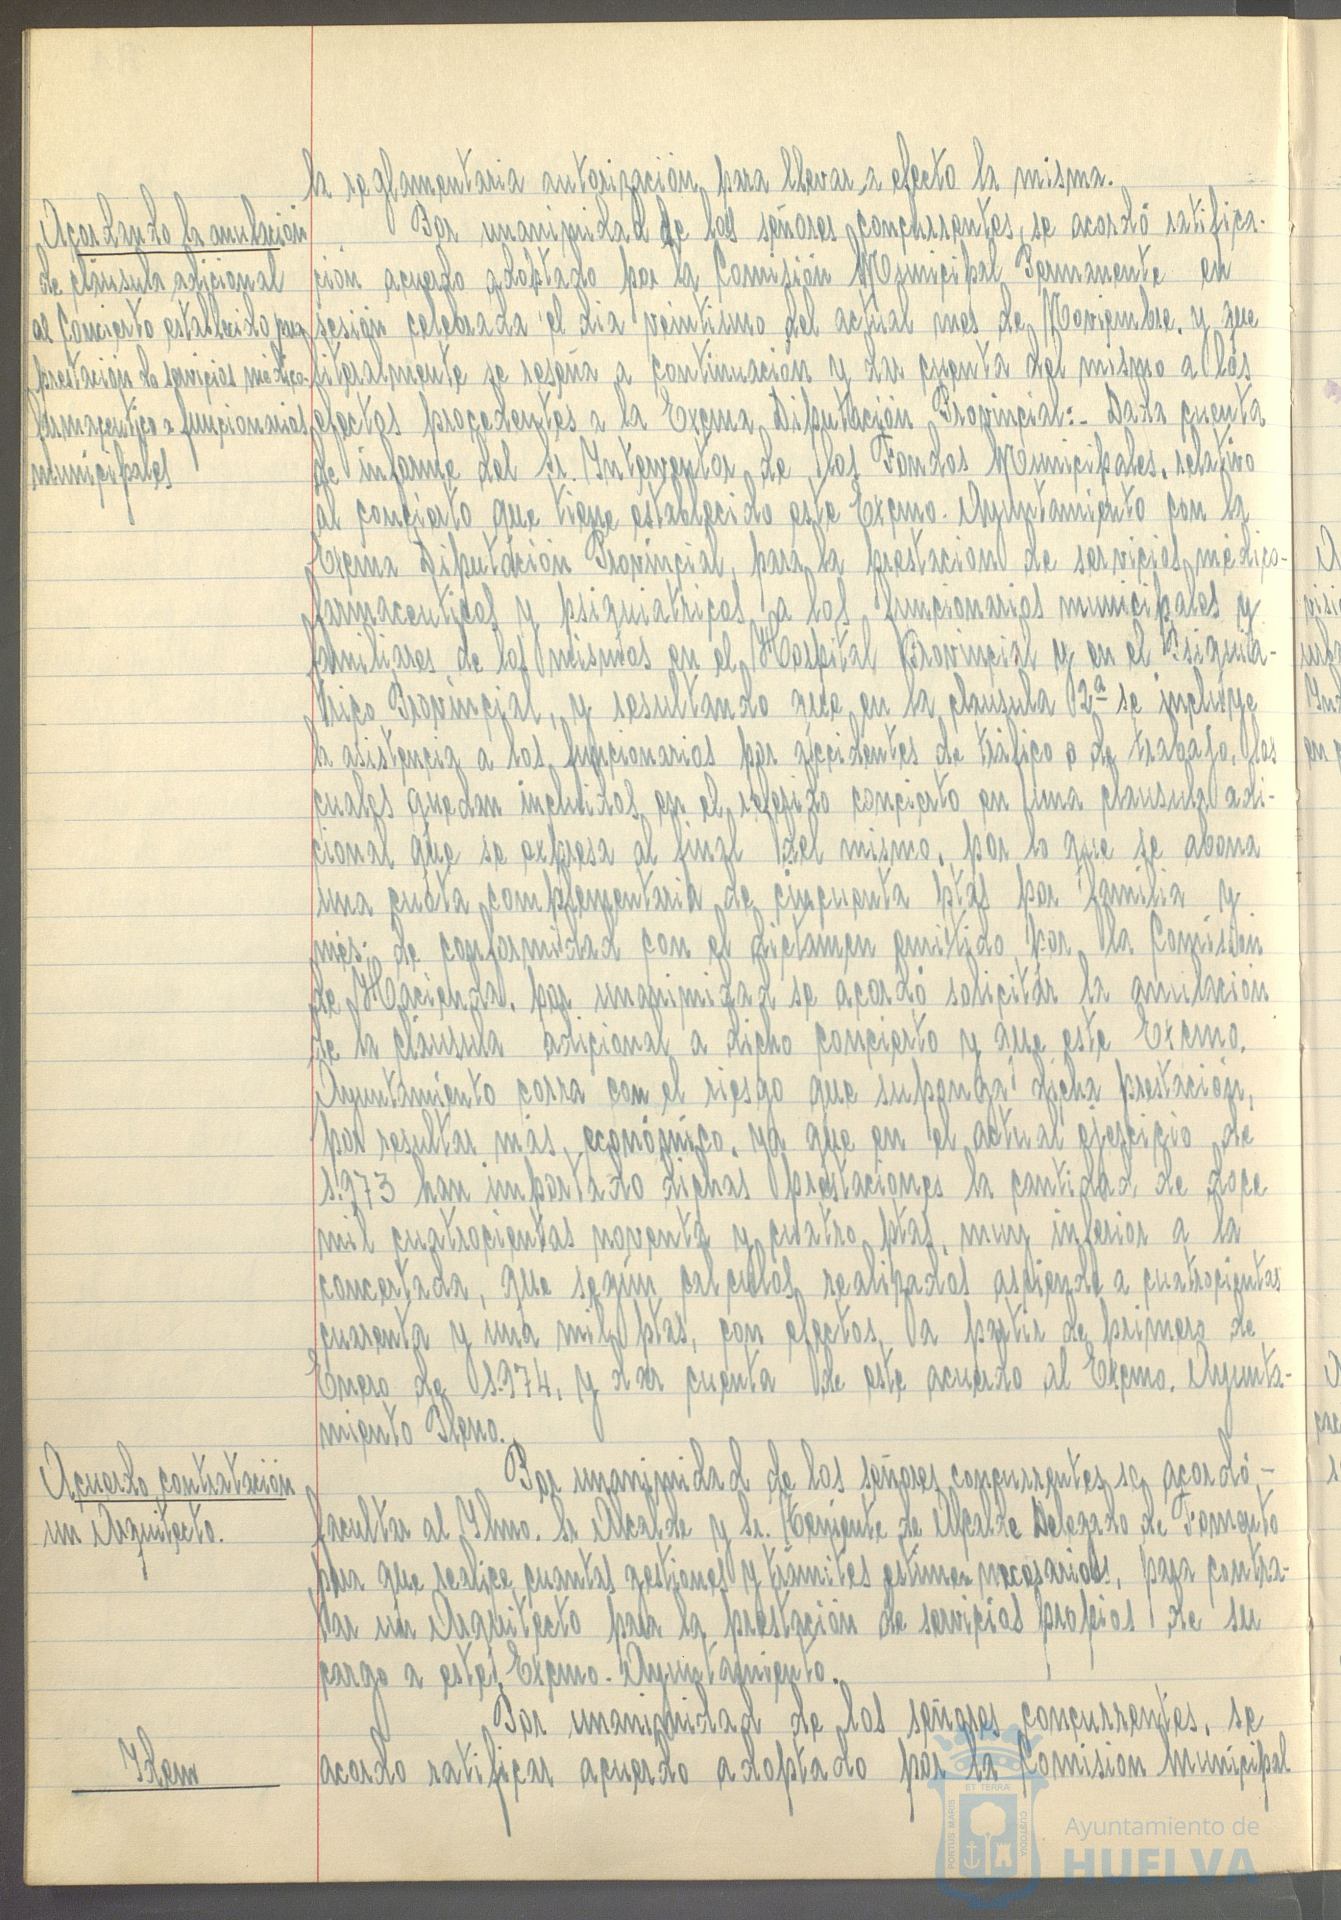 la reglamentaria autorización para llevar a efecto la misma.
Acordando la anulación
de cláusula adicional
al Concierto establecido para
prestación de servicios médico-
farmaceutico a funcionarios
municipales
Por unanimidad de los señores concurrentes, se acordó ratifica-
ción acuerdo adoptado por la Comisión Municipal Permanente en
sesión celebrada el dia veintiuno del actual mes de Noviembre, y que
literalmente se reseña a continuación y dar cuenta del mismo a los
efectos procedentes a la Excma Diputación Provincial:- Dada cuenta
de informe del Sr. Interventor de los Fondos Municipales, relativo
al concierto que tiene establecido este Excmo. Ayuntamiento con la
Excma Diputación Provincial, para la prestacion de servicios médico-
farmaceuticos y psiquiatricos a los funcionarios municipales y
familiares de los mismos en el Hospital Provincial y en el Psiquiá-
trico Provincial, y resultando que en la clausula 2ª se incluye
la asistencia a los funcionarios por accidentes de tráfico o de trabajo, los
cuales quedan incluidos en el referido concierto en una clausula adi-
cional que se expresa al final del mismo, por lo que se abona
una cuota complementaria de cincuenta ptas por familia y
mes; de conformidad con el dictamen emitido por la Comisión
de Hacienda, por unanimidad se acordó solicitar la anulación
de la clausula adicional a dicho concierto y que este Excmo.
Ayuntamiento corra con el riesgo que suponga dicha prestación,
por resultar más económico, ya que en el actual ejercicio de
1.973 han importado dichas prestaciones la cantidad de doce
mil cuatrocientas noventa y cuatro ptas, muy inferior a la
concertada, que según calculos realizados asciende a cuatrocientas
cuarenta y una mil ptas, con efectos a partir de primero de
Enero de 1.974, y dar cuenta de este acuerdo al Excmo. Ayunta-
miento Pleno.
Acuerdo contratación
un Arquitecto.
Por unanimidad de los señores concurrentes se acordó-
facultar al Ilmo. Sr Alcalde y Sr. Teniente de Alcalde Delegado de Fomento
para que realice cuantas gestiones y trámites estimen necesarios, para contra-
tar un Arquitecto para la prestación de servicios propios de su
cargo a este Excmo. Ayuntamiento.
Idem
Por unanimidad de los señores concurrentes, se
acordo ratificar acuerdo adoptado por la Comision Municipal
PORTUS MARIS ET TERRAE CUSTODIA
Ayuntamiento de
HUELVA